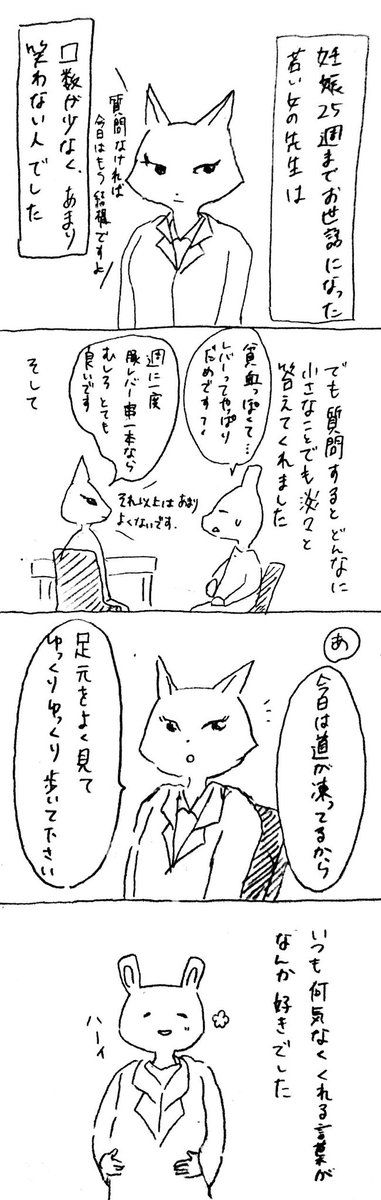 妊娠25週まで お世話になった
若い女の先生は
口数が少なく、あまり
笑わない人でした
質問なければ
今日はもう結構ですよ
でも 質問すると どんなに
小さなことでも 淡々と
答えてくれました
貧血っぽくて…
レバーってやっぱり
だめですか?
週に一度
豚レバー串一本なら
むしろ とても
良いです
それ以上は あまり
よくないです.
そして
あ
今日は道が凍ってるから
足元をよく見て
ゆっくりゆっくり歩いて下さい
いつも何気なくくれる言葉が
なんか好きでした
ハーイ